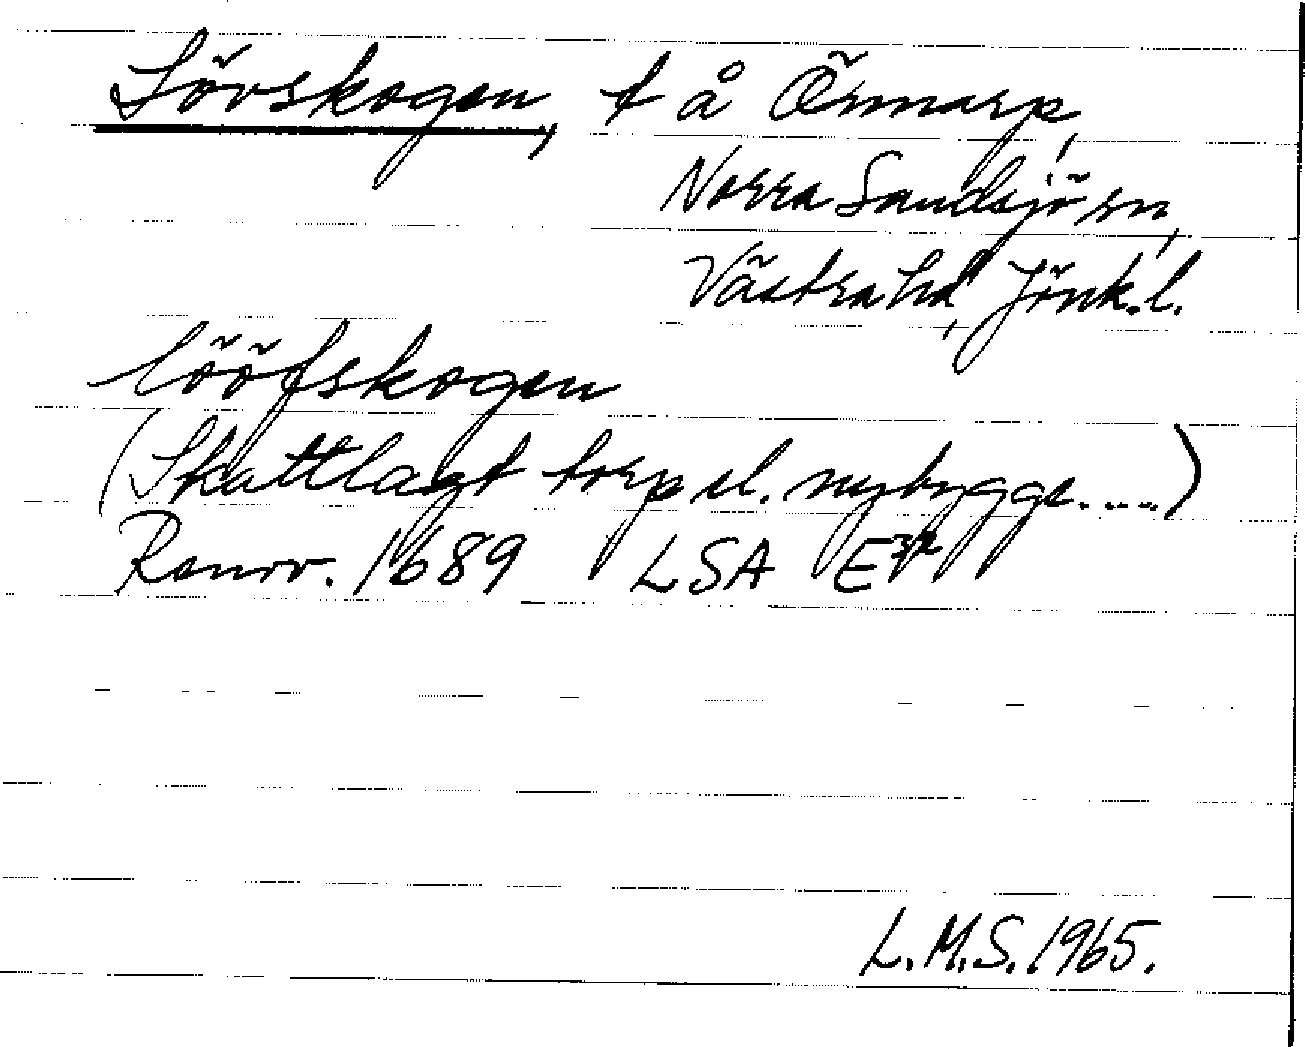 Lövskogen, t å Örmarp,
Norra Sandsjö sn,
Västra hd, Jönk.l.
lööfskogen
(Skattlagt torp el. nybygge....)
Renov. 1689 LSA E
L.M.S. 1965.